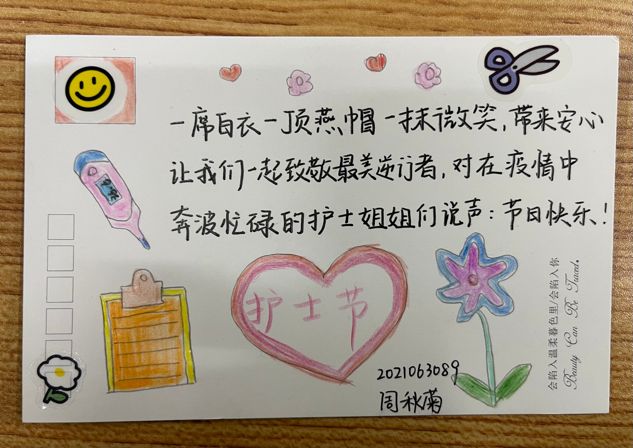 一席白衣一顶燕帽一抹微笑,带来安心
让我们一起致敬最美逆行者,对在疫情中
奔波忙碌的护士姐姐们说声:节日快乐!
护士节
2021063089
周秋菊
会陷入温柔暮色里/会陷入你
Beauty Can Be Tuned.